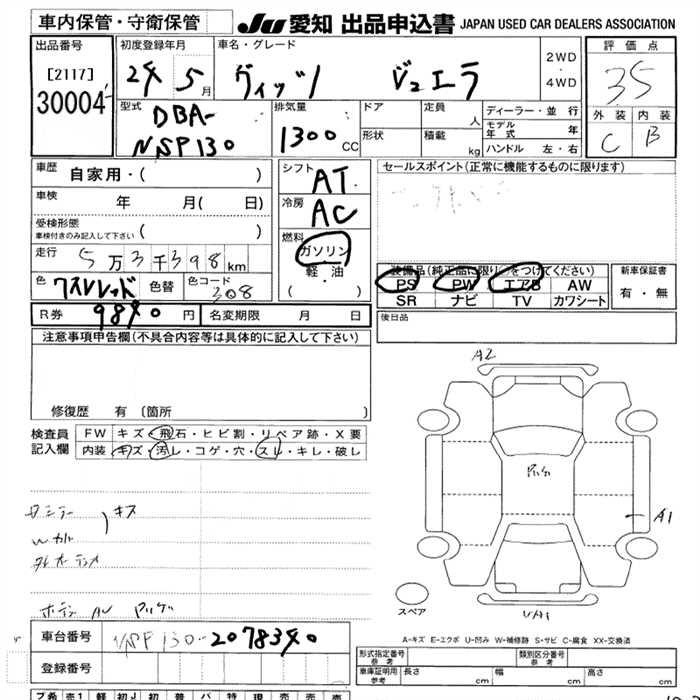 車内保管・守衛保管 JU 愛知 出品申込書 JAPAN USED CAR DEALERS ASSOCIATION
出品番号 初度登録年月 車名・グレード 2WD 評価点
[2117] 24 5月 ヴィッツ ジュエラ ・ 35
30004 4WD
型式 排気量 ドア 定員 人 ディーラー・並行 外装 内装
DBA- 1300CC 形状 積載 kg モデル年式 年 C B
NSP130 ハンドル 左・右
車歴 自家用・( ) シフト AT セールスポイント(正常に機能するものに限ります)
車検 年 月( 日) 冷房 AC
受検形態 ( ) 燃料
車検付きのみ記入して下さい ガソリン
走行 5万3千398km 軽油 装備品(純正品に限り○をつけてください) 新車保証書
色 色替 色コード 308 ・( ) PS PW エアB AW 有・無
SR ナビ TV カワシート
R券 9840円 名変期限 月 日 後日品
注意事項申告欄(不具合内容等は具体的に記入して下さい)
修復歴 有 [箇所 ]
検査員 FW キズ・飛石・ヒビ割・リペア跡・X要
記入欄 内装 キズ・汚レ・コゲ・穴・スレ・キレ・破レ
A2
A1
キズ
スペア
車台番号 NSP130-2078340
A-キズ E-エクボ U-凹み W-補修跡 S-サビ C-腐食 XX-交換済
登録番号
形式指定番号 参考 類別区分番号 参考
車庫証明用 参考 長さ cm 幅 cm 高さ cm